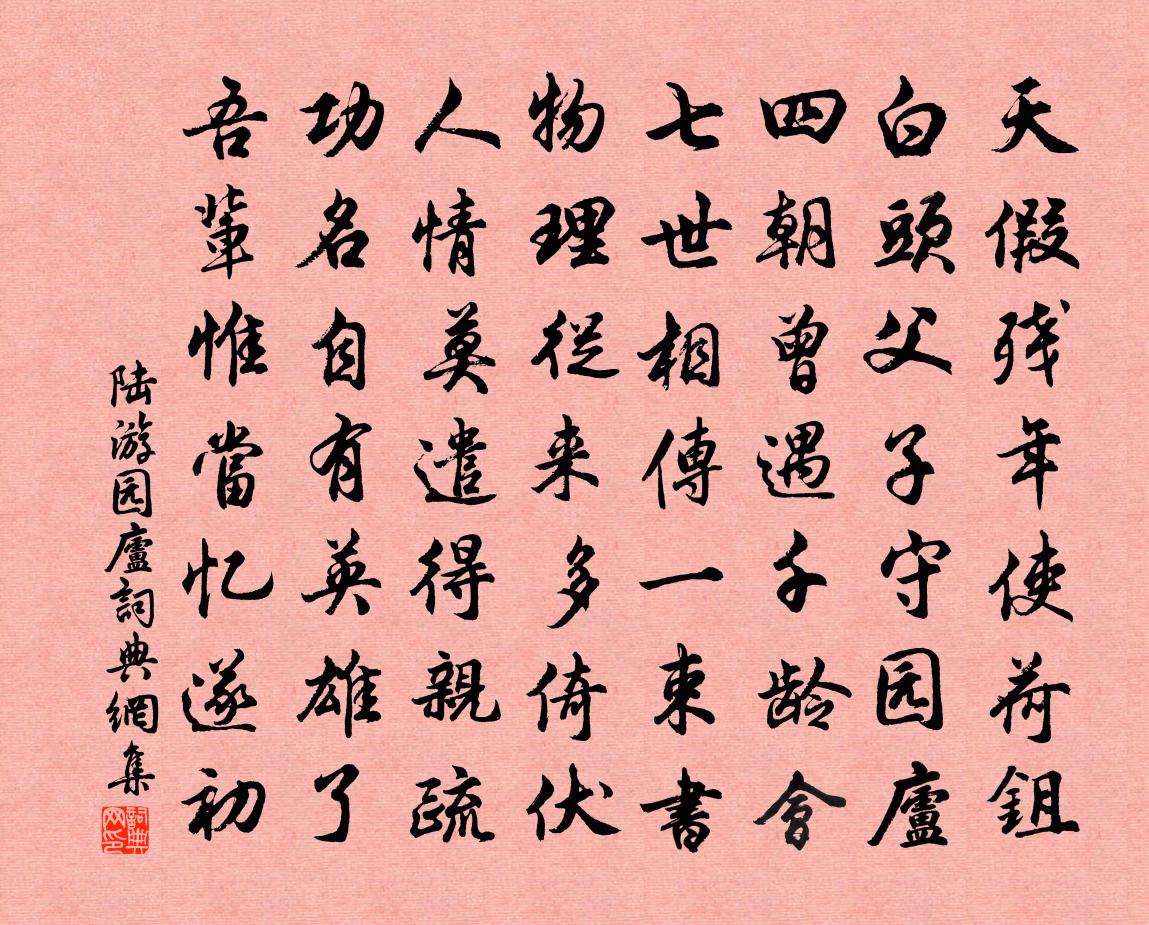 天假残年使荷鉏
白頭父子守园廬
四朝曾遇千龄會
七世相傳一束書
物理從来多倚伏
人情莫遣得親疏
功名自有英雄了
吾輩惟當忆遂初
陆游园廬詞典網集
詞典网印